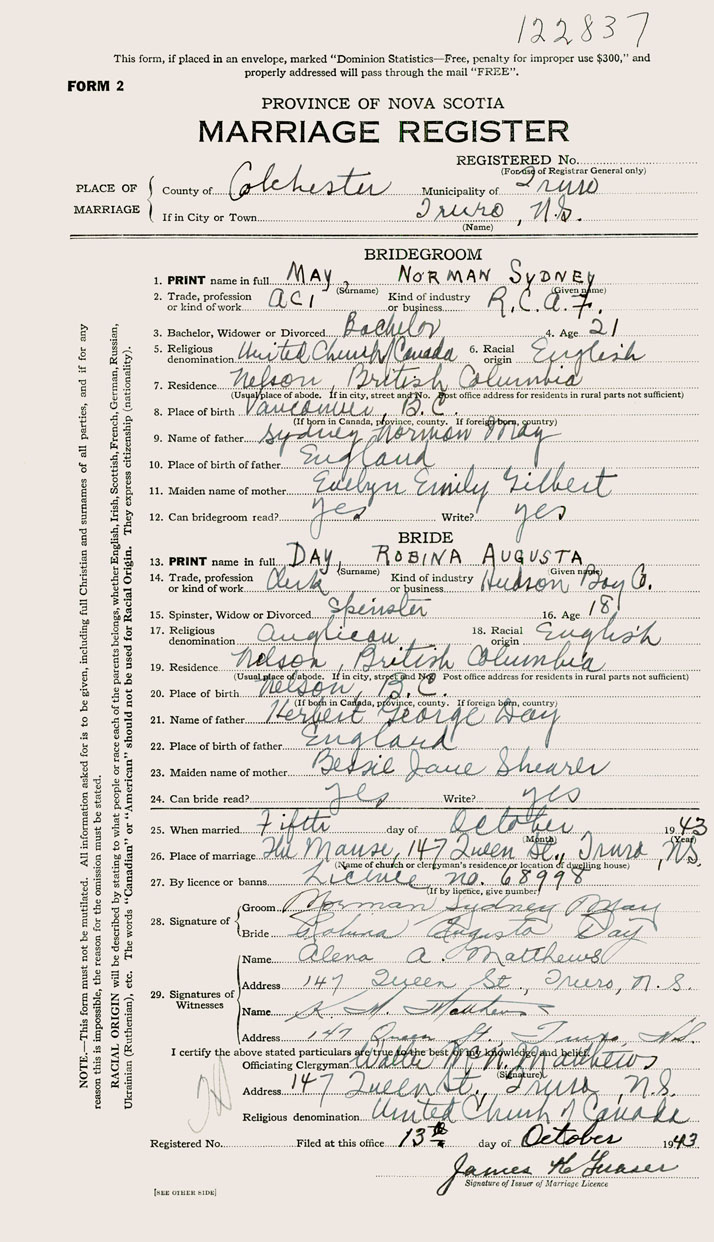 122837
This form, if placed in an envelope, marked "Dominion Statistics—Free, penalty for improper use $300," and
properly addressed will pass through the mail "FREE".
FORM 2
PROVINCE OF NOVA SCOTIA
MARRIAGE REGISTER
REGISTERED No.
(For use of Registrar General only)
PLACE OF MARRIAGE
County of Colchester Municipality of Truro
If in City or Town Truro, N.S.
(Name)
BRIDEGROOM
1. PRINT name in full MAY, NORMAN SYDNEY
(Surname) (Given name)
2. Trade, profession or kind of work AC1 Kind of industry or business R.C.A.F.
3. Bachelor, Widower or Divorced Bachelor 4. Age 21
5. Religious denomination United Church/Canada 6. Racial origin English
7. Residence Nelson, British Columbia
(Usual place of abode. If in city, street and No. Post office address for residents in rural parts not sufficient)
8. Place of birth Vancouver, B.C.
(If born in Canada, province, county. If foreign born, country)
9. Name of father Sydney Norman May
10. Place of birth of father England
11. Maiden name of mother Evelyn Emily Gilbert
12. Can bridegroom read? yes Write? yes
BRIDE
13. PRINT name in full DAY, ROBINA AUGUSTA
(Surname) (Given name)
14. Trade, profession or kind of work Clerk Kind of industry or business Hudson Bay Co.
15. Spinster, Widow or Divorced Spinster 16. Age 18
17. Religious denomination Anglican 18. Racial origin English
19. Residence Nelson, British Columbia
(Usual place of abode. If in city, street and No. Post office address for residents in rural parts not sufficient)
20. Place of birth Nelson, B.C.
(If born in Canada, province, county. If foreign born, country)
21. Name of father Herbert George Day
22. Place of birth of father England
23. Maiden name of mother Bessie Jane Shearer
24. Can bride read? yes Write? yes
25. When married Fifth day of October 1943
(Month) (Year)
26. Place of marriage The Manse, 147 Queen St., Truro, N.S.
(Name of church or clergyman's residence or location of dwelling house)
27. By licence or banns Licence no. 68998
(If by licence, give number)
28. Signature of
Groom Norman Sydney May
Bride Robina Augusta Day
29. Signatures of Witnesses
Name Alena A. Matthews
Address 147 Queen St., Truro, N.S.
Name Matthews
Address 147 Queen St. Truro, N.S.
I certify the above stated particulars are true to the best of my knowledge and belief.
Officiating Clergyman Walter Mathews
(Signature)
Address 147 Queen St., Truro, N.S.
Religious denomination United Church of Canada
Registered No. Filed at this office 13th day of October 1943
James
Signature of Issuer of Marriage Licence
[SEE OTHER SIDE]
NOTE.—This form must not be mutilated. All information asked for is to be given, including full Christian and surnames of all parties, and if for any
reason this is impossible, the reason for the omission must be stated.
RACIAL ORIGIN will be described by stating to what people or race each of the parents belongs, whether English, Irish, Scottish, French, German, Russian,
Ukrainian (Ruthenian), etc. The words "Canadian" or "American" should not be used for Racial Origin. They express citizenship (nationality).